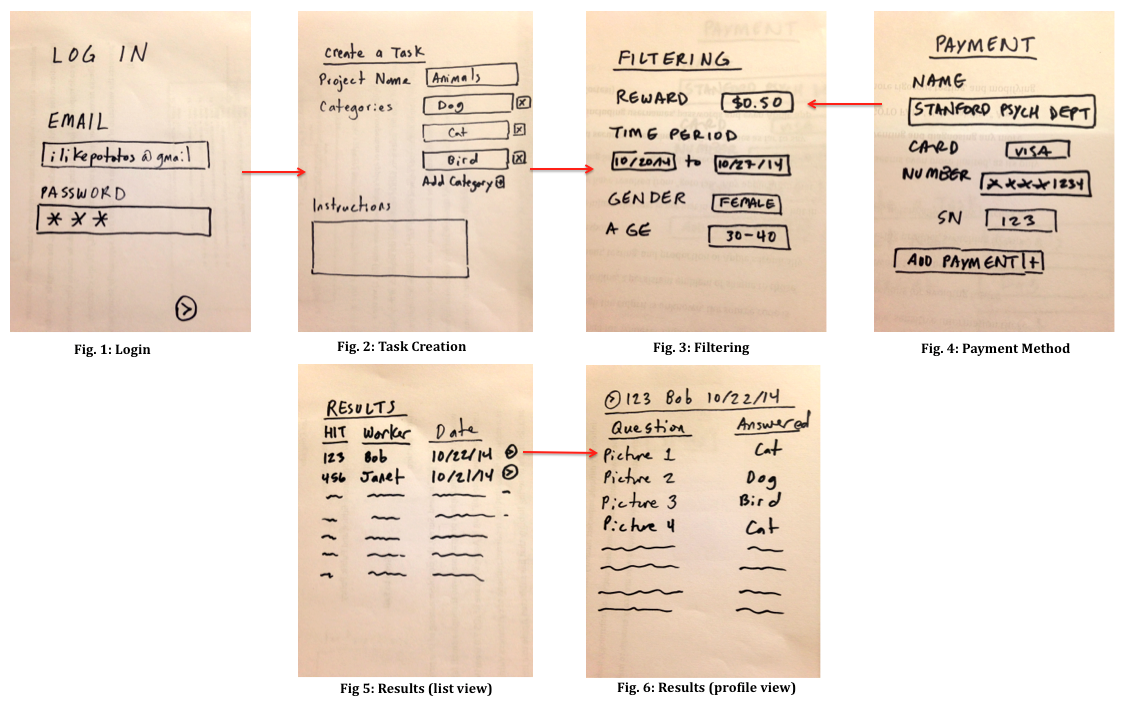 LOG IN
EMAIL
ilikepototos@gmail
PASSWORD
***
>
Fig. 1: Login
Create a Task
Project Name Animals
Categories Dog x
Cat x
Bird x
Add Category +
Instructions
Fig. 2: Task Creation
FILTERING
REWARD $0.50
TIME PERIOD
10/20/14 to 10/27/14
GENDER FEMALE
AGE 30-40
Fig. 3: Filtering
PAYMENT
NAME
STANFORD PSYCH DEPT
CARD VISA
NUMBER ****1234
SN 123
ADD PAYMENT +
Fig. 4: Payment Method
RESULTS
HIT Worker Date
123 Bob 10/22/14 >
456 Janet 10/21/14 >
Fig 5: Results (list view)
> 123 Bob 10/22/14
Question Answered
Picture 1 Cat
Picture 2 Dog
Picture 3 Bird
Picture 4 Cat
Fig. 6: Results (profile view)